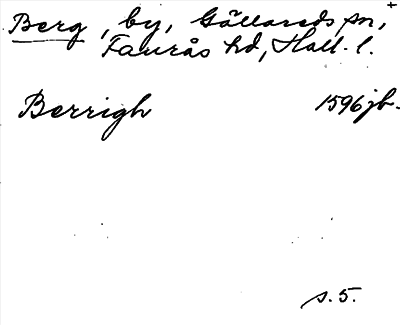 Berg, by, Gällareds sn, +
Faurås hd, Hall. l.
Berrigh 1596 jb.
s. 5.